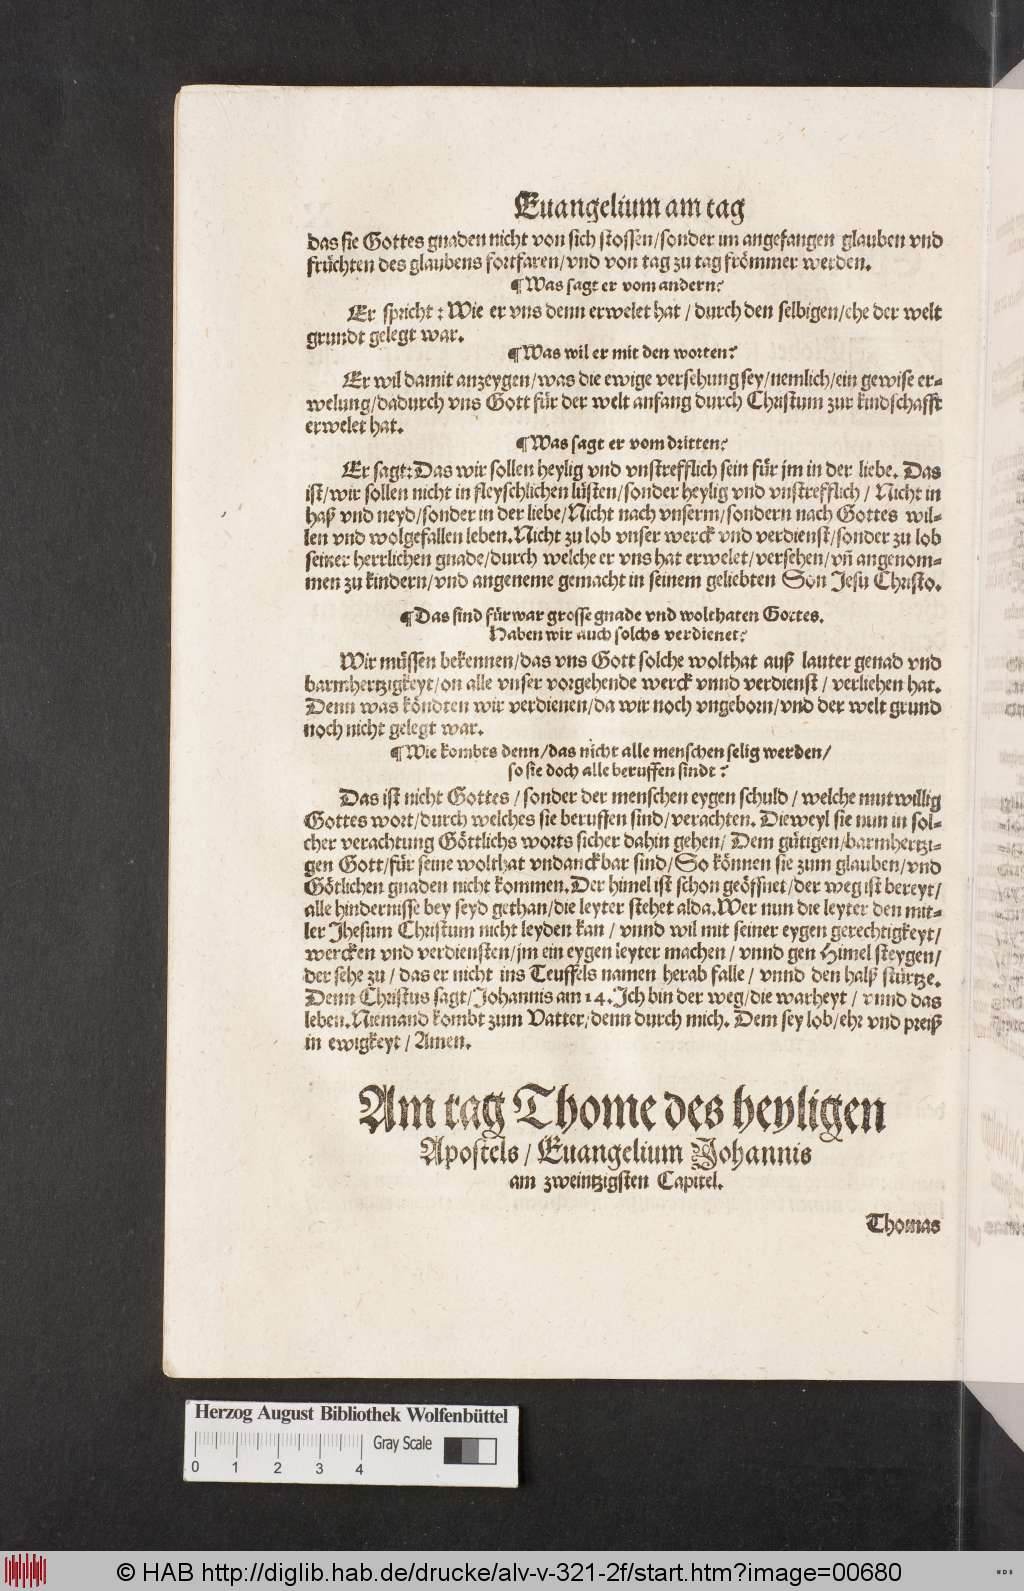 Euangelium am tag
das sie Gottes gnaden nicht von sich stossen/sonder im angefangen glauben vnd
früchten des glaubens fortfaren/vnd von tag zu tag frömmer werden.
¶Was sagt er vom andern?
Er spricht: Wie er vns denn erwelet hat / durch den selbigen/ehe der welt
grundt gelegt war.
¶Was wil er mit den worten?
Er wil damit anzeygen/was die ewige versehung sey/nemlich/ein gewise er-
welung/dadurch vns Gott für der welt anfang durch Christum zur kindschafft
erwelet hat.
¶Was sagt er vom dritten?
Er sagt: Das wir sollen heylig vnd vnstrefflich sein für jm in der liebe. Das
ist/wir sollen nicht in fleyschlichen lüsten/sonder heylig vnd vnstrefflich / Nicht in
haß vnd neyd/sonder in der liebe/Nicht nach vnserm/sondern nach Gottes wil-
len vnd wolgefallen leben. Nicht zu lob vnser werck vnd verdienst/sonder zu lob
seiner herrlichen gnade/durch welche er vns hat erwelet/versehen/vñ angenom-
men zu kindern/vnd angeneme gemacht in seinem geliebten Son Jesu Christo.
¶Das sind fürwar grosse gnade vnd wolthaten Gottes.
Haben wir auch solchs verdienet?
Wir müssen bekennen/das vns Gott solche wolthat auß lauter genad vnd
barmhertzigkeyt/on alle vnser vorgehende werck vnnd verdienst / verliehen hat.
Denn was köndten wir verdienen/da wir noch vngeborn/vnd der welt grund
noch nicht gelegt war.
¶Wie kombts denn/das nicht alle menschen selig werden/
so sie doch alle beruffen sindt?
Das ist nicht Gottes / sonder der menschen eygen schuld / welche mutwillig
Gottes wort/durch welches sie beruffen sind/verachten. Dieweyl sie nun in sol-
cher verachtung Göttlichs worts sicher dahin gehen/ Dem gütigen/barmhertzi-
gen Gott/für seine wolthat vndanckbar sind/So können sie zum glauben/vnd
Götlichen gnaden nicht kommen. Der himel ist schon geöffnet/der weg ist bereyt/
alle hindernisse bey seyd gethan/die leyter stehet alda. Wer nun die leyter den mit-
ler Jhesum Christum nicht leyden kan / vnnd wil mit seiner eygen gerechtigkeyt/
wercken vnd verdiensten/jm ein eygen leyter machen / vnnd gen Himel steygen/
der sehe zu / das er nicht ins Teuffels namen herab falle / vnnd den halß stürtze.
Denn Christus sagt/Johannis am 14. Ich bin der weg/die warheyt / vnnd das
leben. Niemand kombt zum Vatter/denn durch mich. Dem sey lob/ehr vnd preiß
in ewigkeyt / Amen.
Am tag Thome des heyligen
Apostels / Euangelium Johannis
am zweintzigsten Capitel.
Thomas
Herzog August Bibliothek Wolfenbüttel
Gray Scale
0 1 2 3 4
© HAB http://diglib.hab.de/drucke/alv-v-321-2f/start.htm?image=00680